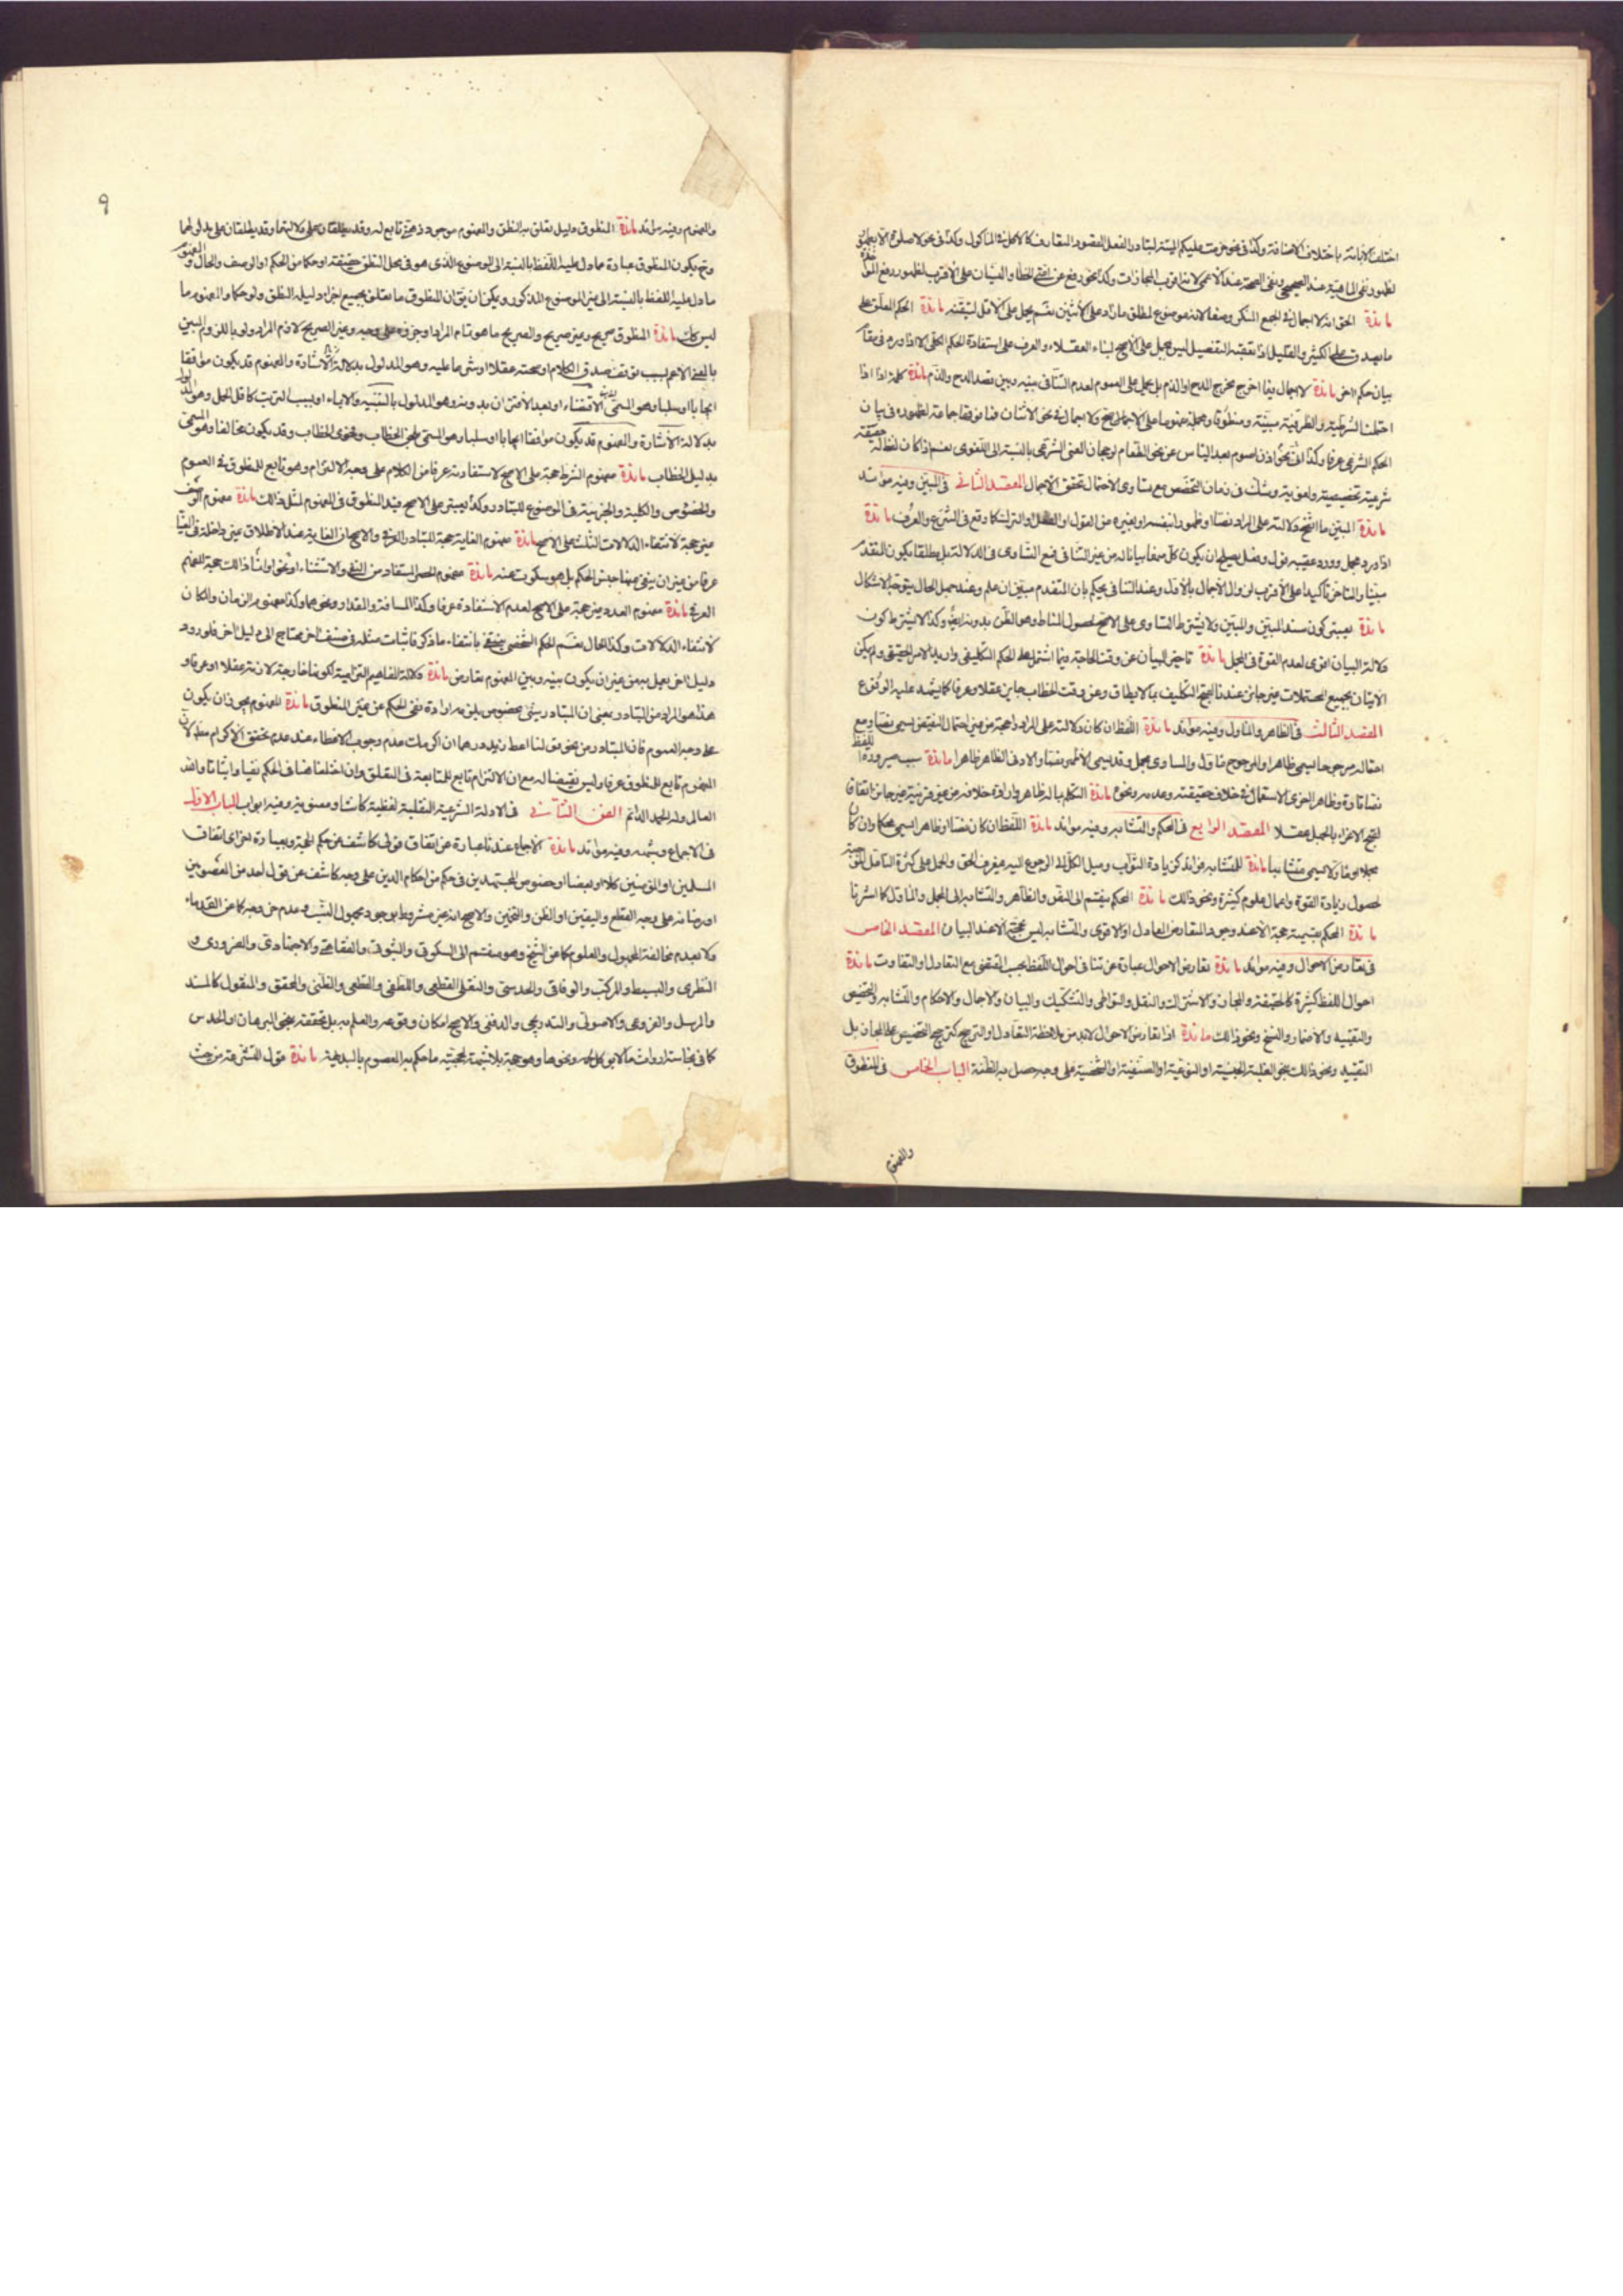 اختلف الابانة باختلاف الاضافة وكذا فى نحو حرمت عليكم الميتة لتبادر الفعل المقصود المتعارف كالاكل فى الماكول وكذا فى نحو لا صلوة الا بطهور
لظهور نفى الماهية عند الصحيحى ونفى الصحة عند الاعمى لانه اقرب المجازات وكذا نحو رفع عن امتى الخطا والنسيان على الاقرب لظهور رفع المؤاخذة
مائدة الحق انه لا اجمال فى الجمع المنكر وضعا لانه موضوع لمطلق ما زاد على الاثنين نعم يحمل على الاقل لتيقنه مائدة الحكم المعلق على
ما يصدق على الكثير والقليل اذا تعقبه التفصيل ليس بمجمل على الاصح لبناء العقلاء والعرف على استفادة الحكم الكلى الا اذا ورد فى مقام
بيان حكم اخر مائدة لا اجمال فيما اخرج مخرج المدح او الذم بل يحمل على العموم لعدم التنافى بينه وبين قصد المدح والذم مائدة كلمة اذا اذا
احتملت الشرطية والظرفية مبينة ومنطوقا ومجملة مفهوما على الاصح ولا اجمال فى نحو الاثنان فما فوقها جماعة لظهوره فى بيان
الحكم الشرعى عرفا وكذا فى نحو اذن اصوم بعد الياس عن نحو الطعام لرجحان المعنى الشرعى بالنسبة الى اللغوى نعم اذا كان لفظ له حقيقة
شرعية تخصيصية ولغوية وشك فى زمان التخصص مع تساوى الاحتمال تحقق الاجمال المقصد الثانى فى المبين وفيه موائد
مائدة المبين ما اتضح دلالته على المراد نصا او ظهورا بنفسه او بغيره من القول او الفعل او الترك كما وقع فى الشرع والعرف مائدة
اذا ورد مجمل وورد عقيبه قول وفعل يصلح ان يكون كل منهما بيانا له من غير التنافى فمع التساوى فى الدلالة بل مطلقا يكون المتقدم
مبينا والمتاخر تاكيدا على الاقرب لزوال الاجمال بالاول وعند التنافى يحكم بان المتقدم مبين ان علم وعند جهل الحال يتوجه الاشكال
مائدة يعتبر كون سند المبين والمبين ولا يشترط التساوى على الاصح لحصول المناط وهو الظن بدونه ايضا وكذا لا يشترط كون
دلالة البيان اقوى لعدم القوة فى المجمل مائدة تاخير البيان عن وقت الحاجة فيما اشتمل على الحكم التكليفى واريد الامر الحقيقى ولم يكن
الاتيان بجميع المحتملات غير جائز عندنا لقبح التكليف بما لا يطاق وعن وقت الخطاب جائز عقلا وعرفا كما يشهد عليه الوقوع
المقصد الثالث فى الظاهر والماول وفيه موائد مائدة اللفظ ان كان دلالته على المراد واضحة من غير احتمال النقيض يسمى نصا ومع
احتماله مرجوحا يسمى ظاهرا والمرجوح ماول والمساوى مجمل وقد يسمى الاظهر نصا والادنى الظاهر ظاهرا مائدة سبب صيرورة اللفظ
نصا تارة وظاهرا اخرى الاستعمال فى خلاف حقيقته وعدمه ونحوه مائدة التكلم بما له ظاهر وارادة خلافه من غير قرينة غير جائز اتفاقا
لقبح الاغراء بالجهل عقلا المقصد الرابع فى المحكم والمتشابه وفيه موائد مائدة اللفظ ان كان نصا او ظاهرا يسمى محكما وان كان
مجملا او ماولا يسمى متشابها مائدة للمتشابه فوائد كزيادة الثواب وميل الكل الى الرجوع اليه فيعرف الحق والحمل على كثرة التامل الموجبة
لحصول زيادة القوة واعمال علوم كثيرة ونحو ذلك مائدة المحكم ينقسم الى النص والظاهر والمتشابه الى المجمل والماول كما اشرنا
مائدة المحكم بقسميه حجة الا عند وجود المتعارض المعادل او الاقوى والمتشابه ليس بحجة الا عند البيان المقصد الخامس
فى تعارض الاحوال وفيه موائد مائدة تعارض الاحوال عبارة عن تنافى احوال اللفظ بحسب المقتضى مع التعادل او التفاوت مائدة
احوال اللفظ كثيرة كالحقيقة والمجاز والاشتراك والنقل والتواطى والتشكيك والبيان والاجمال والاحكام والتشابه والتخصيص
والتقييد والاضمار والنسخ ونحو ذلك مائدة اذا تعارض الاحوال لابد من ملاحظة التعادل او الترجيح كترجيح التخصيص على المجاز بل
التقييد ونحو ذلك بنحو الغلبة الجنسية او النوعية او الصنفية او الشخصية على وجه حصل به المظنة الباب الخامس فى المنطوق
والمفهوم
٩
والمفهوم وفيه موائد مائدة المنطوق دليل تعلق به النطق والمفهوم موجود ذهنى تابع له وقد يطلقان على دلالتهما وقد يطلقان على مدلولهما
وح يكون المنطوق عبارة عما دل عليه اللفظ بالنسبة الى الموضوع الذى هو فى محل النطق حقيقة او حكما من الحكم او الوصف والحال والمفهوم
ما دل عليه اللفظ بالنسبة الى غير الموضوع المذكور ويمكن ان يق ان المنطوق ما تعلق بجميع اجزاء دليله النطق ولو حكما والمفهوم ما
ليس كك مائدة المنطوق صريح وغير صريح والصريح ما هو تمام المراد او جزؤه على وجه وغير الصريح لازم المراد ولو باللزوم البين
بالمعنى الاعم لسبب توقف صدق الكلام او صحته عقلا او شرعا عليه وهو المدلول بدلالة الاشارة والمفهوم قد يكون موافقا
ايجابا او سلبا وهو المسمى بدلالة الاقتضاء او لبعد الاقتران بدونه وهو المدلول بالتنبيه والايماء او بسبب الترتب كاقل الحمل وهو المدلول
بدلالة الاشارة والمفهوم قد يكون موافقا ايجابا او سلبا وهو المسمى بلحن الخطاب وفحوى الخطاب وقد يكون مخالفا وهو المسمى
بدليل الخطاب مائدة مفهوم الشرط حجة على الاصح لاستفادته عرفا من الكلام على وجه الالتزام وهو تابع للمنطوق فى العموم
والخصوص والكلية والجزئية فى الموضوع للتبادر وكذا يعتبر على الاصح قيد المنطوق فى المفهوم لمثل ذلك مائدة مفهوم الوصف
غير حجة لانتفاء الدلالات الثلث على الاصح مائدة مفهوم الغاية حجة للتبادر العرفى والاصح ان الغاية عند الاطلاق غير داخلة فى المغيا
عرفا من غير ان ينفى عنها جنس الحكم بل هو مسكوت عنه مائدة مفهوم الحصر المستفاد من النفى والاستثناء او نحو انما كذلك حجة للفهم
العرفى مائدة مفهوم العدد غير حجة على الاصح لعدم الاستفادة عرفا وكذا المسافة والمقدار ونحوهما وكذا مفهوم الزمان والمكان
لانتفاء الدلالات وكذا الحال نعم الحكم الشخصى ينتفى بانتفاء ما ذكر فاثبات مثله فى صنف اخر محتاج الى دليل اخر فلو ورد
دليل اخر يعمل به من غير ان يكون بينه وبين المفهوم تعارض مائدة دلالة المفاهيم التزامية لكونها خارجة لازمة عقلا او عرفا و
هذا هو المراد من التبادر بمعنى ان المتبادر شئ مخصوص يلزمه ارادة نفى الحكم عن غير المنطوق مائدة المفهوم يجوز ان يكون
على وجه العموم فان المتبادر من نحو قولنا اعط زيدا درهما ان اكرمك عدم وجوب الاعطاء عند عدم تحقق الاكرام مطلقا لان
المفهوم تابع للمنطوق عرفا وليس نقيضا له مع ان الالتزام تابع للمتابعة فى التعلق وان اختلفا هنا فى الحكم نفيا واثباتا والله
العالم وله الحمد الدائم الفن الثانى فى الادلة الشرعية النقلية لفظية كانت او معنوية وفيه ابواب الباب الاول
فى الاجماع وقسمه وفيه موائد مائدة الاجماع عندنا عبارة عن اتفاق قولى كاشف عن حكم الحجة وبعبارة اخرى اتفاق
المسلمين او المؤمنين كلا او بعضا او خصوص المجتهدين فى حكم من احكام الدين على وجه كاشف عن قول احد من المعصومين
او رضائه على وجه القطع واليقين او الظن والتخمين والاصح انه غير مشروط بوجود مجهول النسب وعدم خروجه كما عن القدماء
ولا بعدم مخالفة المجهول والمعلوم كما عن الشيخ وهو منقسم الى السكوتى والثبوتى والفقاهتى والاجتهادى والضرورى و
النظرى والبسيط والمركب والوفاقى والحدسى والنقلى القطعى واللطفى والقطعى والظنى والمحقق والمنقول كالمسند
والمرسل والفروعى والاصولى والتدريجى والدفعى والاصح امكان وقوعه والعلم به بل تحققه بنحو البرهان او الحدس
كما فى نجاسة ارواث مالا يؤكل لحمه ونحوها وهو حجة بلا شبهة لحجية ما حكم به المعصوم بالبديهة مائدة